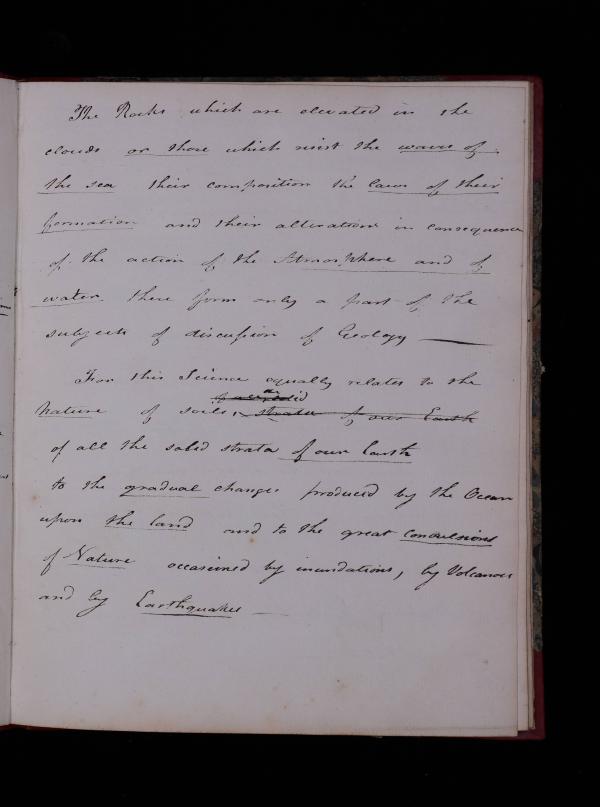 The Rocks which are elevated in the
clouds or those which resist the waves of
the sea their composition the laws of their
formation and their alterations in consequence
of the action of the Atmosphere and of
water. these form only a part of the
subjects of discussion of Geology —
For this Science equally relates to the
Nature of soils, strata of our Earth
of all the solid strata of our Earth
to the gradual changes produced by the Ocean
upon the land and to the great convulsions
of Nature occasioned by inundations, by Volcanoes
and by Earthquakes —